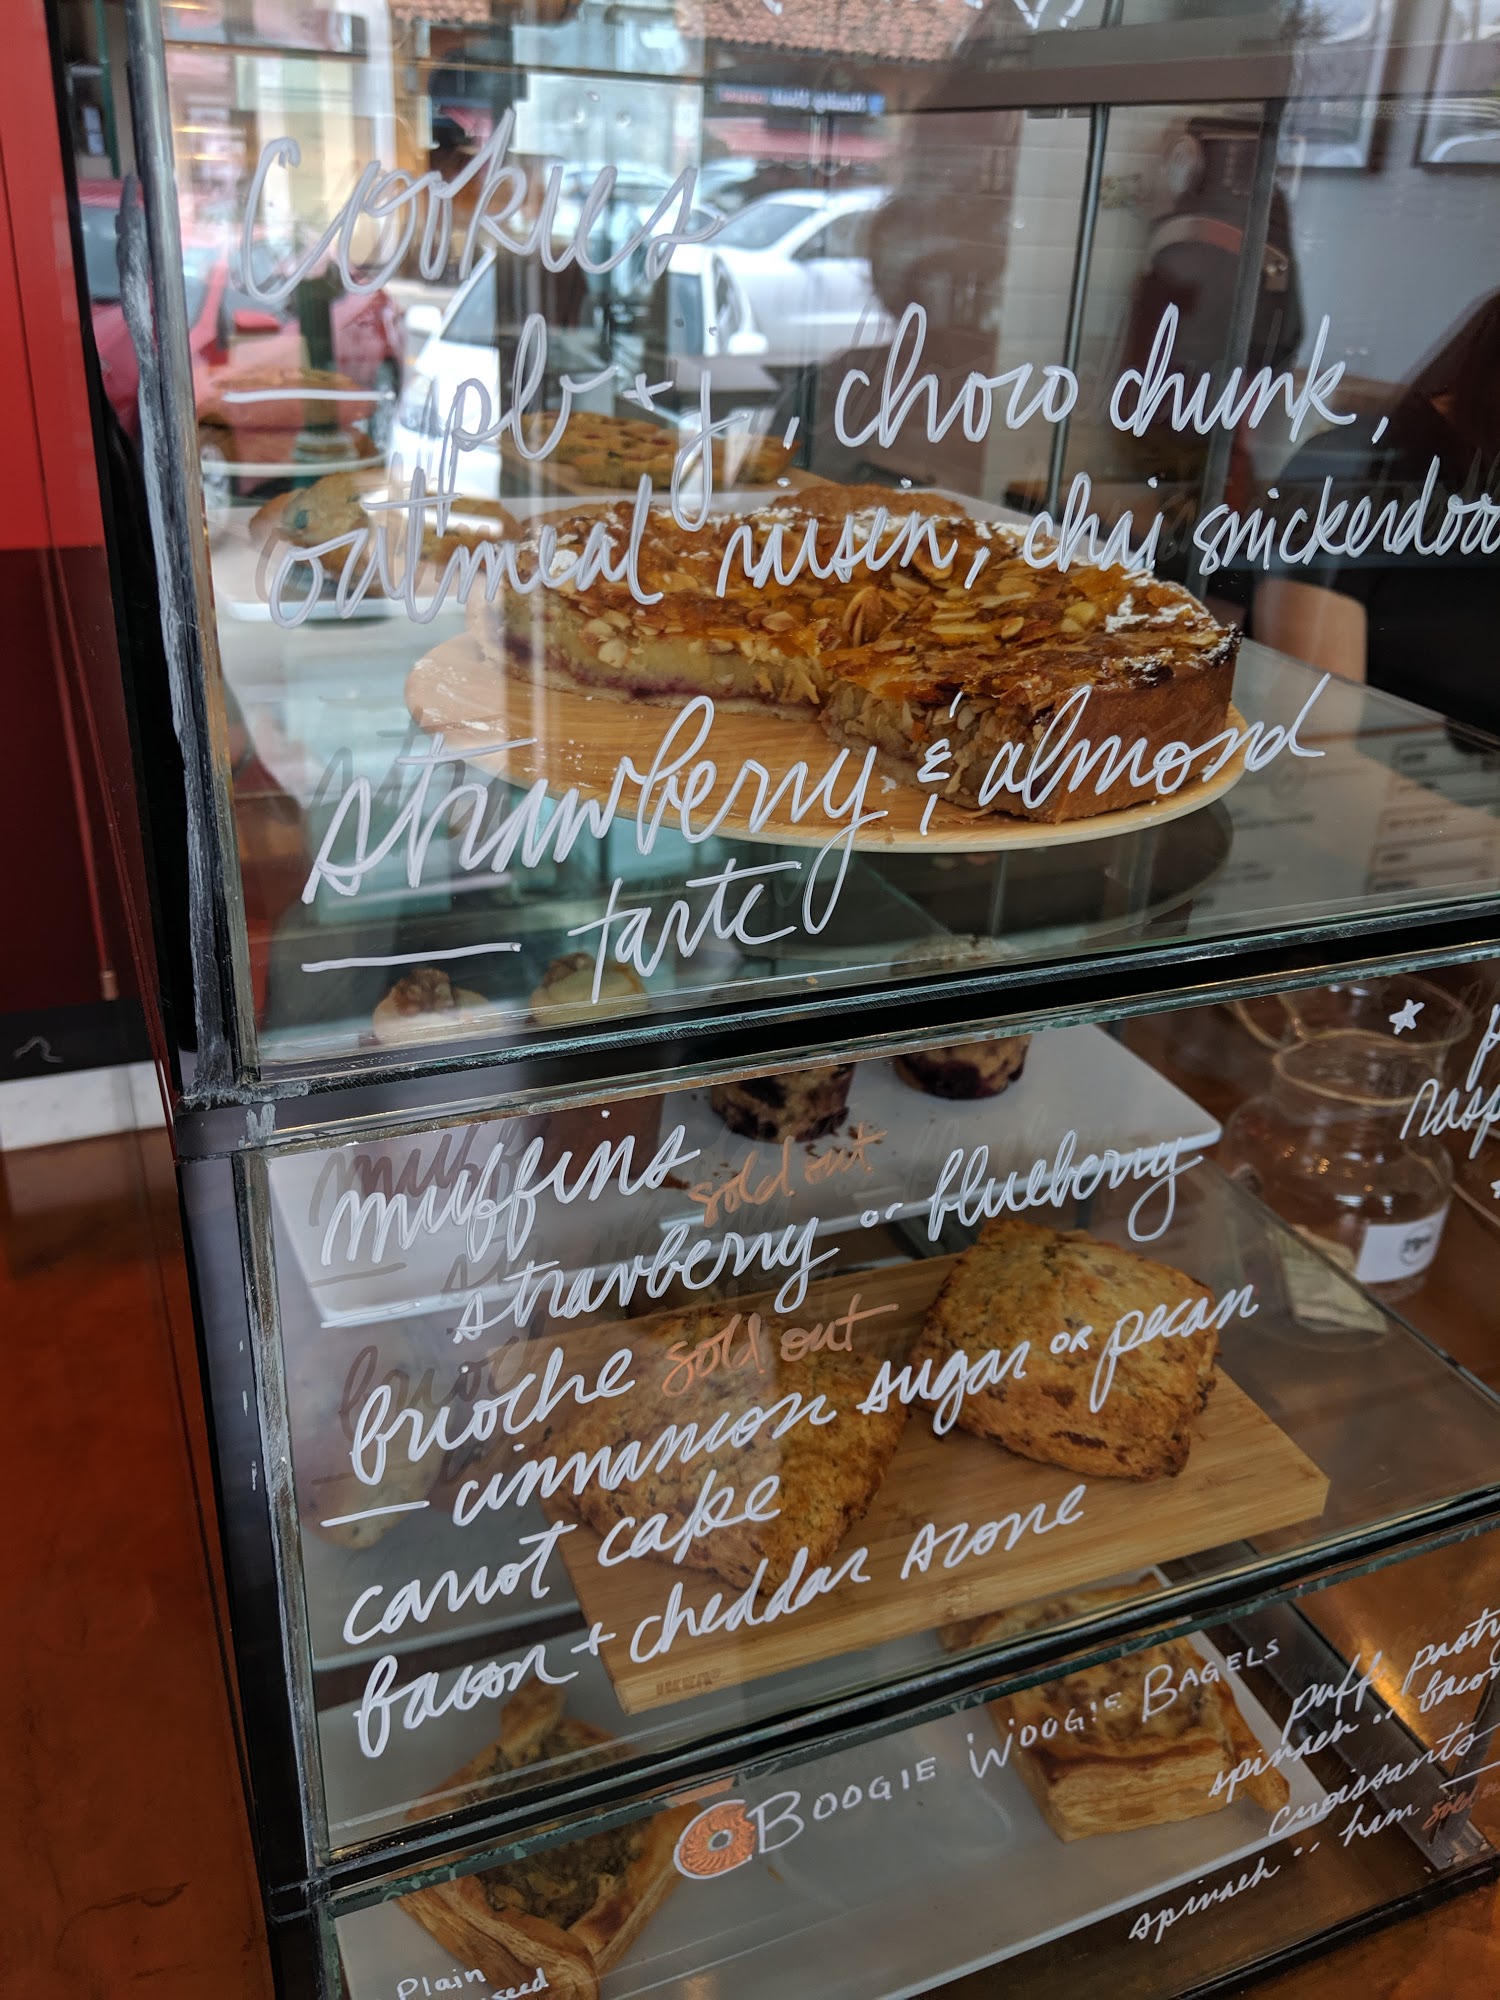 Cookies
— pb + j, choco chunk,
oatmeal raisin, chai snickerdoo
strawberry & almond
— tarte
muffins sold out
strawberry or blueberry
brioche sold out
— cinnamon sugar or pecan
carrot cake
bacon + cheddar scone
BOOGIE WOOGIE BAGELS
Plain
seed
puff pastry
spinach or bacon
croissants
spinach or ham sold